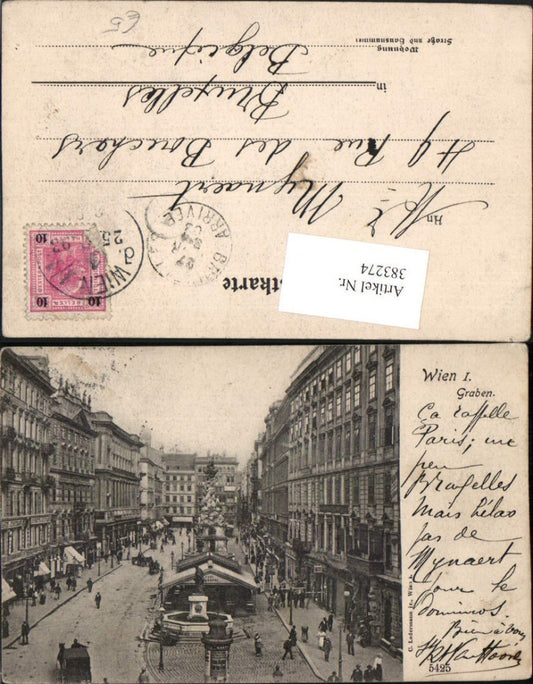 Postkarte
Artikel Nr.
383274
Hn Mr Mynaert
49 Rue des Bouchers
in Bruxelles
Belgique
Wohnung
Straße und Hausnummer
10 10
10
WIEN
25
ARRIVÉE
65
Wien I.
Graben.
Ça rappelle
Paris; un
peu
Bruxelles
Mais hélas
pas de
Mynaert
pour le
dominos.
Bien à vous
C. Ledermann jr., Wien I.
5425